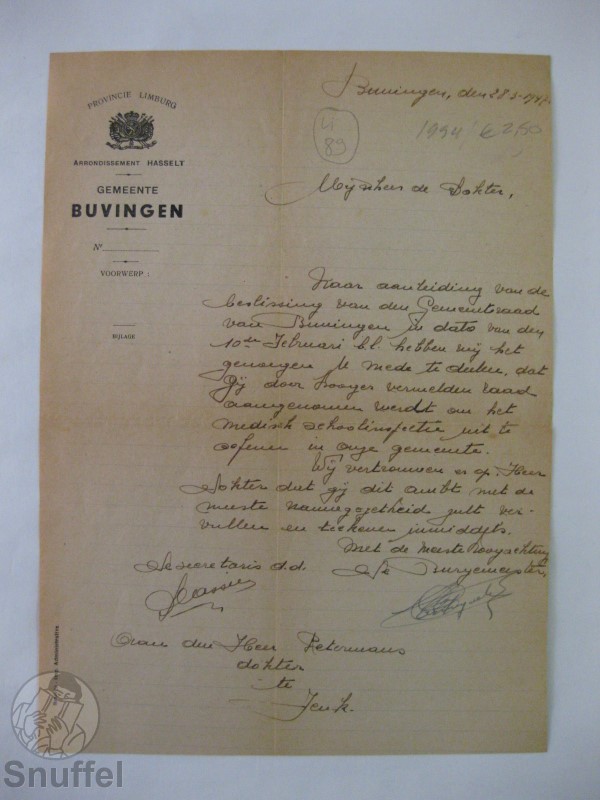 PROVINCIE LIMBURG
ARRONDISSEMENT HASSELT
GEMEENTE
BUVINGEN
Nº
VOORWERP :
BIJLAGE
Buvingen, den 28-3-
1994 € 2,50
89
Mijnheer de Dokter,
Naar aanleiding van de
beslissing van den Gemeenteraad
van Buvingen in dato van den
10den Februari l.l. hebben wij het
genoegen U mede te deelen, dat
gij door hooger vermelden raad
aangenomen werdt om het
medisch schoolinspectie uit te
oefenen in onze gemeente.
Wij vertrouwen er op, Heer
Dokter dat gij dit ambt met de
meeste nauwgezetheid zult ver-
vullen en teekenen inmiddels.
Met de meeste hoogachting
De secretaris d.d. De Burgemeester,
Aan den Heer Petermans
dokter
te
Snuffel